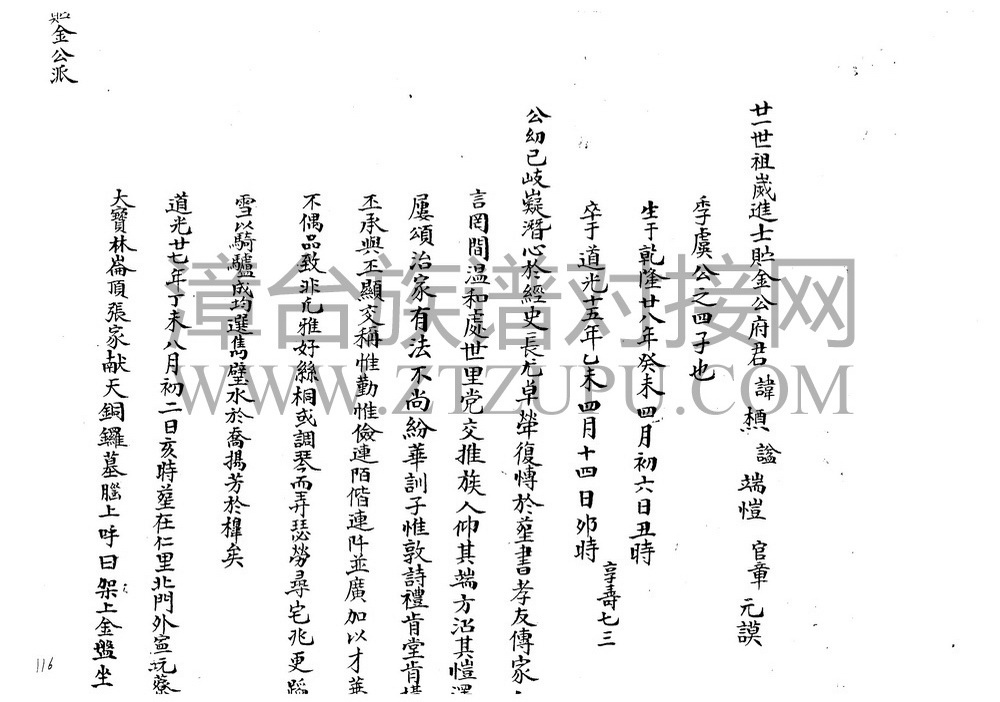 廿一世祖歲進士貯金公府君 諱 樲 謚 端愷 官章 元謨
季虞公之四子也
生于乾隆廿八年癸未四月初六日丑時
卒于道光十五年乙未四月十四日卯時
享壽七三
公幼已岐嶷潛心於經史長尤卓犖復慱於塟書孝友傳家
言罔間溫和處世里党交推族人仰其端方沾其愷澤
屢頌治家有法不尚紛華訓子惟敦詩禮肯堂肯構
丕承與丕顯交稱惟勤惟儉連陌偕連阡並廣加以才華
不偶品致非凡雅好絲桐或調琴而弄瑟勞尋宅兆更蹈
雪以騎驢成均選雋璧水於喬揚芳於樿矣
道光廿七年丁未八月初二日亥時塟在仁里北門外寔坑蔡
大寶林崙頂張家献天銅鑼墓腦上呼曰架上金盤坐
貯金公派
116
漳台族谱对接网
WWW.ZTZUPU.COM